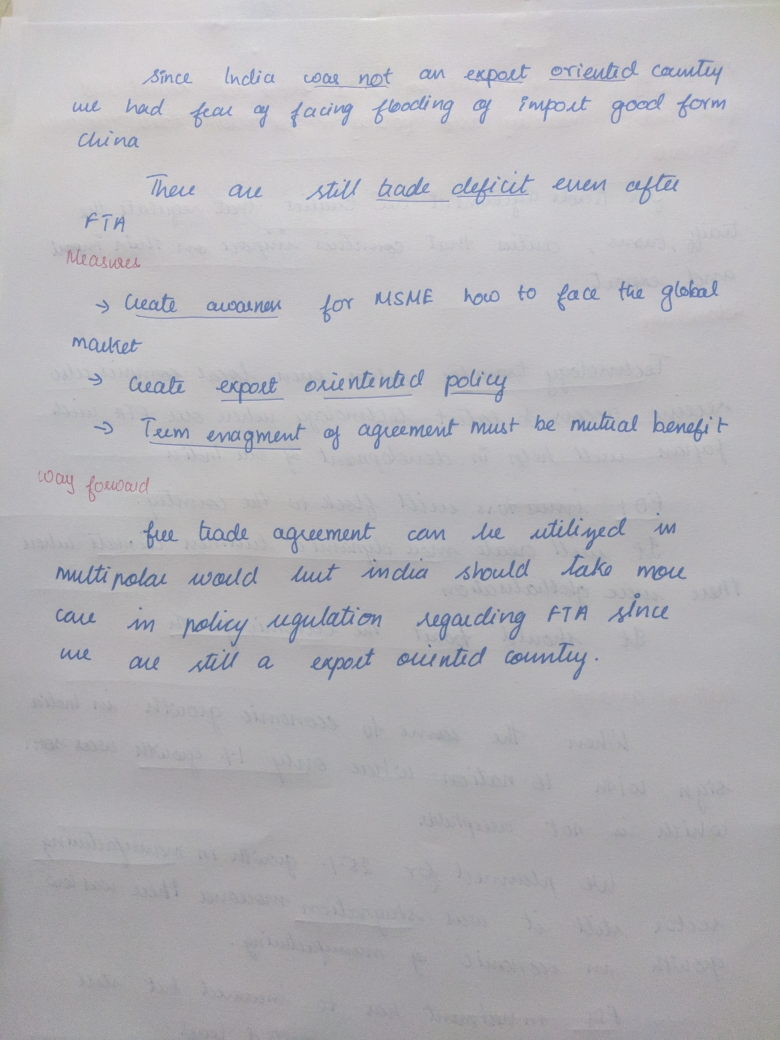 since India was not an export oriented country
we had fear of facing flooding of import good form
China
There are still trade deficit even after
FTA
Measures
→ Create awarness for MSME how to face the global
market
→ Create export orientented policy
→ Term enagment of agreement must be mutual benefit
way forward
free trade agreement can be utilized in
multipolar world but india should take more
care in policy regulation regarding FTA since
we are still a export oriented country.